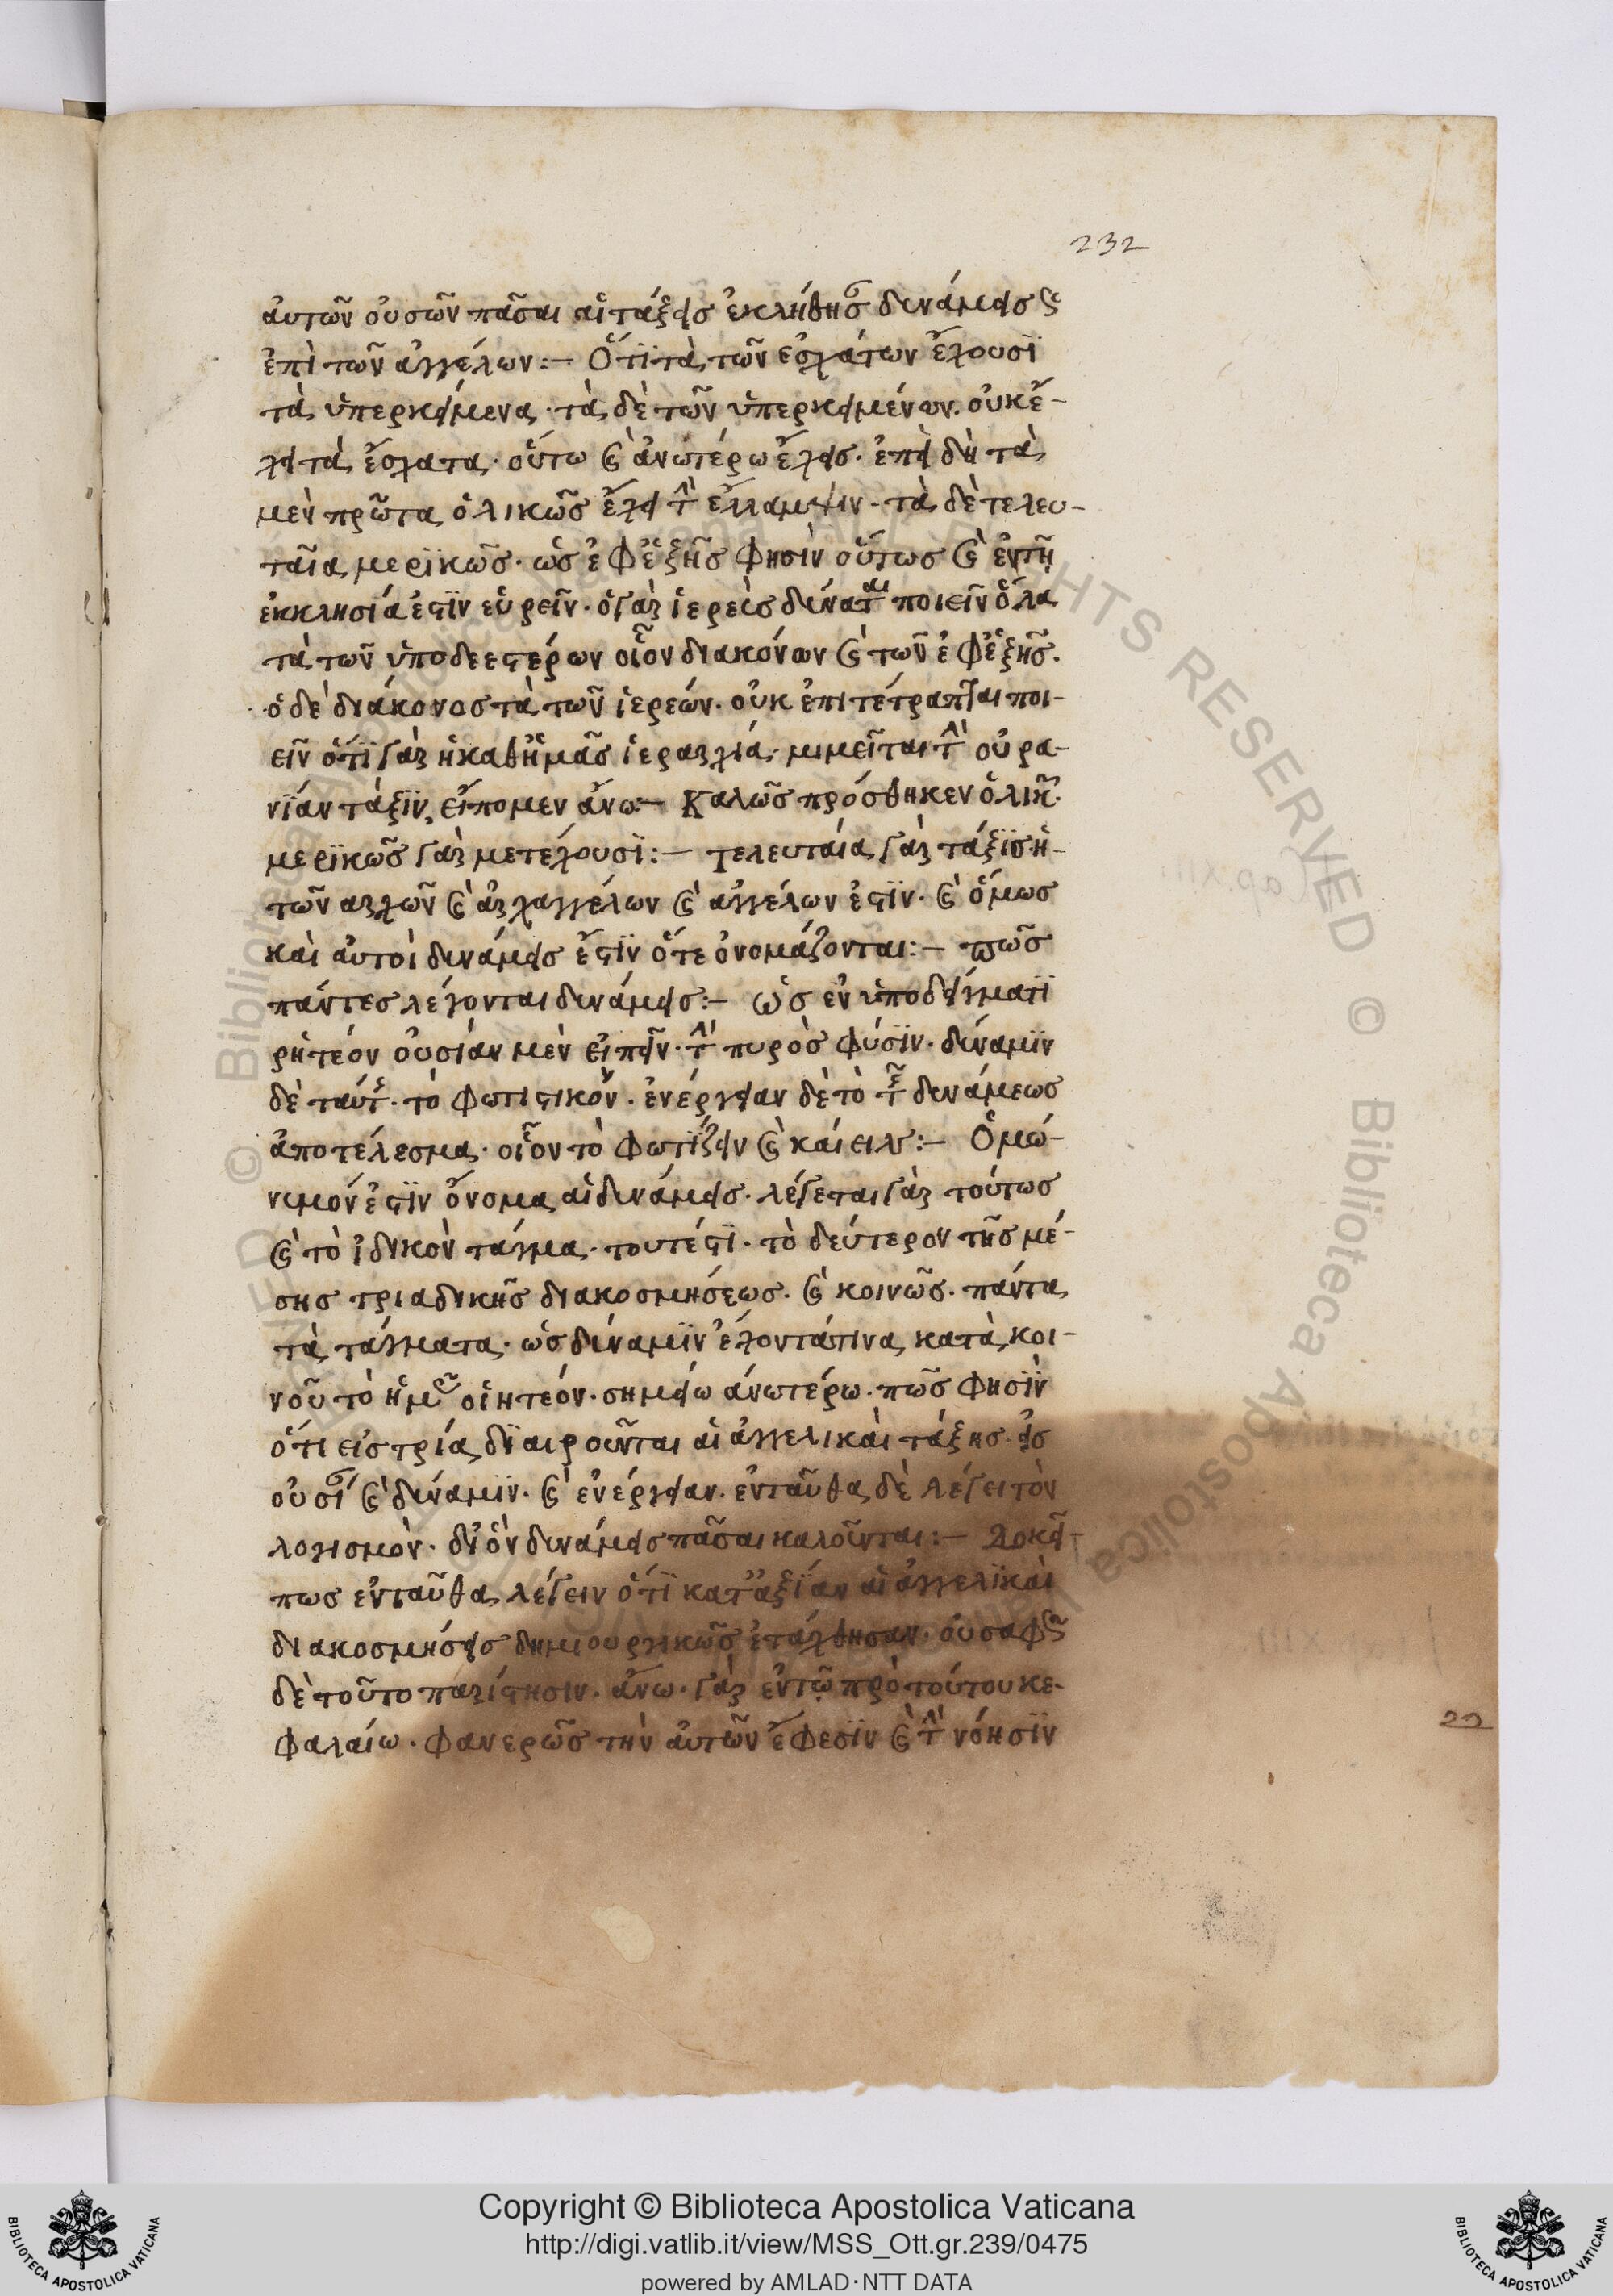 232
αὐτῶν οὐσῶν πᾶσαι αἱ τάξεις ἐκλήθησαν δυνάμεις καὶ
ἐπὶ τῶν ἀγγέλων :— Ὅτι τὰ τῶν ἐσχάτων ἔχουσϊ
τὰ ὑπερκείμενα · τὰ δὲ τῶν ὑπερκειμένων. οὐκ ἔ-
χει τὰ ἔσχατα · οὕτω καὶ ἀνωτέρω ἔχεις · ἐπεὶ δὴ τὰ
μὲν πρῶτα ὁλικῶς ἔχει τὴν ἔλλαμψιν · τὰ δὲ τελευ-
ταῖα μερϊκῶς · ὡς ἐφεξῆς φησὶν οὕτως καὶ ἐν τῇ
ἐκκλησία ἐστϊν εὑρεῖν · ὁ γὰρ ἱερεὺς δύναται ποιεῖν ὅλα
τὰ τῶν ὑποδεεστέρων οἷον διακόνων καὶ τῶν ἐφεξῆς.
ὁ δὲ διάκονος τὰ τῶν ἱερέων. οὐκ ἐπιτέτραπται ποι-
εῖν ὅτϊ γὰρ ἡ καθ ἡμᾶς ἱεραρχία · μιμεῖται τὴν οὐρα-
νΐαν τάξϊν, εἴπομεν ἄνω :— Καλῶς πρόσθηκεν ὁλικῆς·
μερϊκῶς γὰρ μετέχουσϊ :— τελευταία γὰρ τάξϊς ἡ-
τῶν ἀρχῶν καὶ ἀρχαγγέλων καὶ ἀγγέλων ἐστϊν · καὶ ὅμως
καὶ αὐτοὶ δυνάμεις ἔστϊν ὅτε ὀνομάζονται :— πῶς
πάντες λέγονται δυνάμεις :— ὡς ἐν ὑποδείγματϊ
ρητέον οὐσίαν μὲν εἰπεῖν · τὴν πυρὸς φύσϊν · δύναμϊν
δὲ ταύτης · τὸ φωτιστικόν · ἐνέργειαν δὲ τὸ τῆς δυνάμεως
ἀποτέλεσμα · οἷον τὸ φωτΐζειν καὶ καίειν :— Ὁμώ-
νυμόν ἐστϊν ὄνομα αἱ δυνάμεις · λέγεται γὰρ τούτως
καὶ τὸ ἰδικὸν τάγμα · τουτέστϊ · τὸ δεύτερον τῆς μέ-
σης τριαδικῆς διακοσμήσεως · καὶ κοινῶς · πάντα
τὰ τάγματα · ὡς δύναμϊν ἔχοντά τινα κατὰ κοι-
νοῦ τὸ ἡμῶν οἰητέον · σημείω ἀνωτέρω · πῶς φησϊν
ὅτι εἰς τρία δϊαιροῦνται αἱ ἀγγελικαὶ τάξης · εἰς
οὐσίαν καὶ δύναμϊν · καὶ ἐνέργειαν · ἐνταῦθα δὲ λέγει τὸν
λογισμὸν · δι' ὃν δυνάμεις πᾶσαι καλοῦνται :— Δοκεῖ
πως ἐνταῦθα λέγειν ὅτϊ κατ' ἀξΐαν αἱ ἀγγελϊκαὶ
διακοσμήσεις δημιουργικῶς ἐτάχθησαν · οὐ σαφῶς
δὲ τοῦτο παρίστησιν · ἄνω · γὰρ ἐν τῷ πρὸ τούτου κε-
φαλαίω · φανερῶς τὴν αὐτῶν ἔφεσϊν καὶ τὴν νόησϊν
Copyright © Biblioteca Apostolica Vaticana
http://digi.vatlib.it/view/MSS_Ott.gr.239/0475
powered by AMLAD·NTT DATA